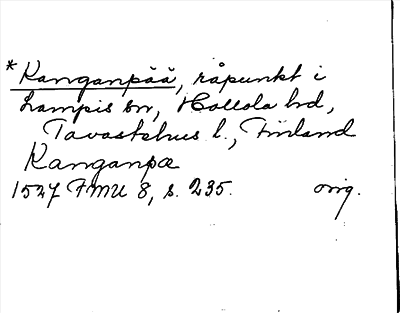 *Kanganpää, råpunkt i
Lampis sn, Hollola hd,
Tavastehus l., Finland
Kanganpæ
1527 FMU 8, s. 235. orig.